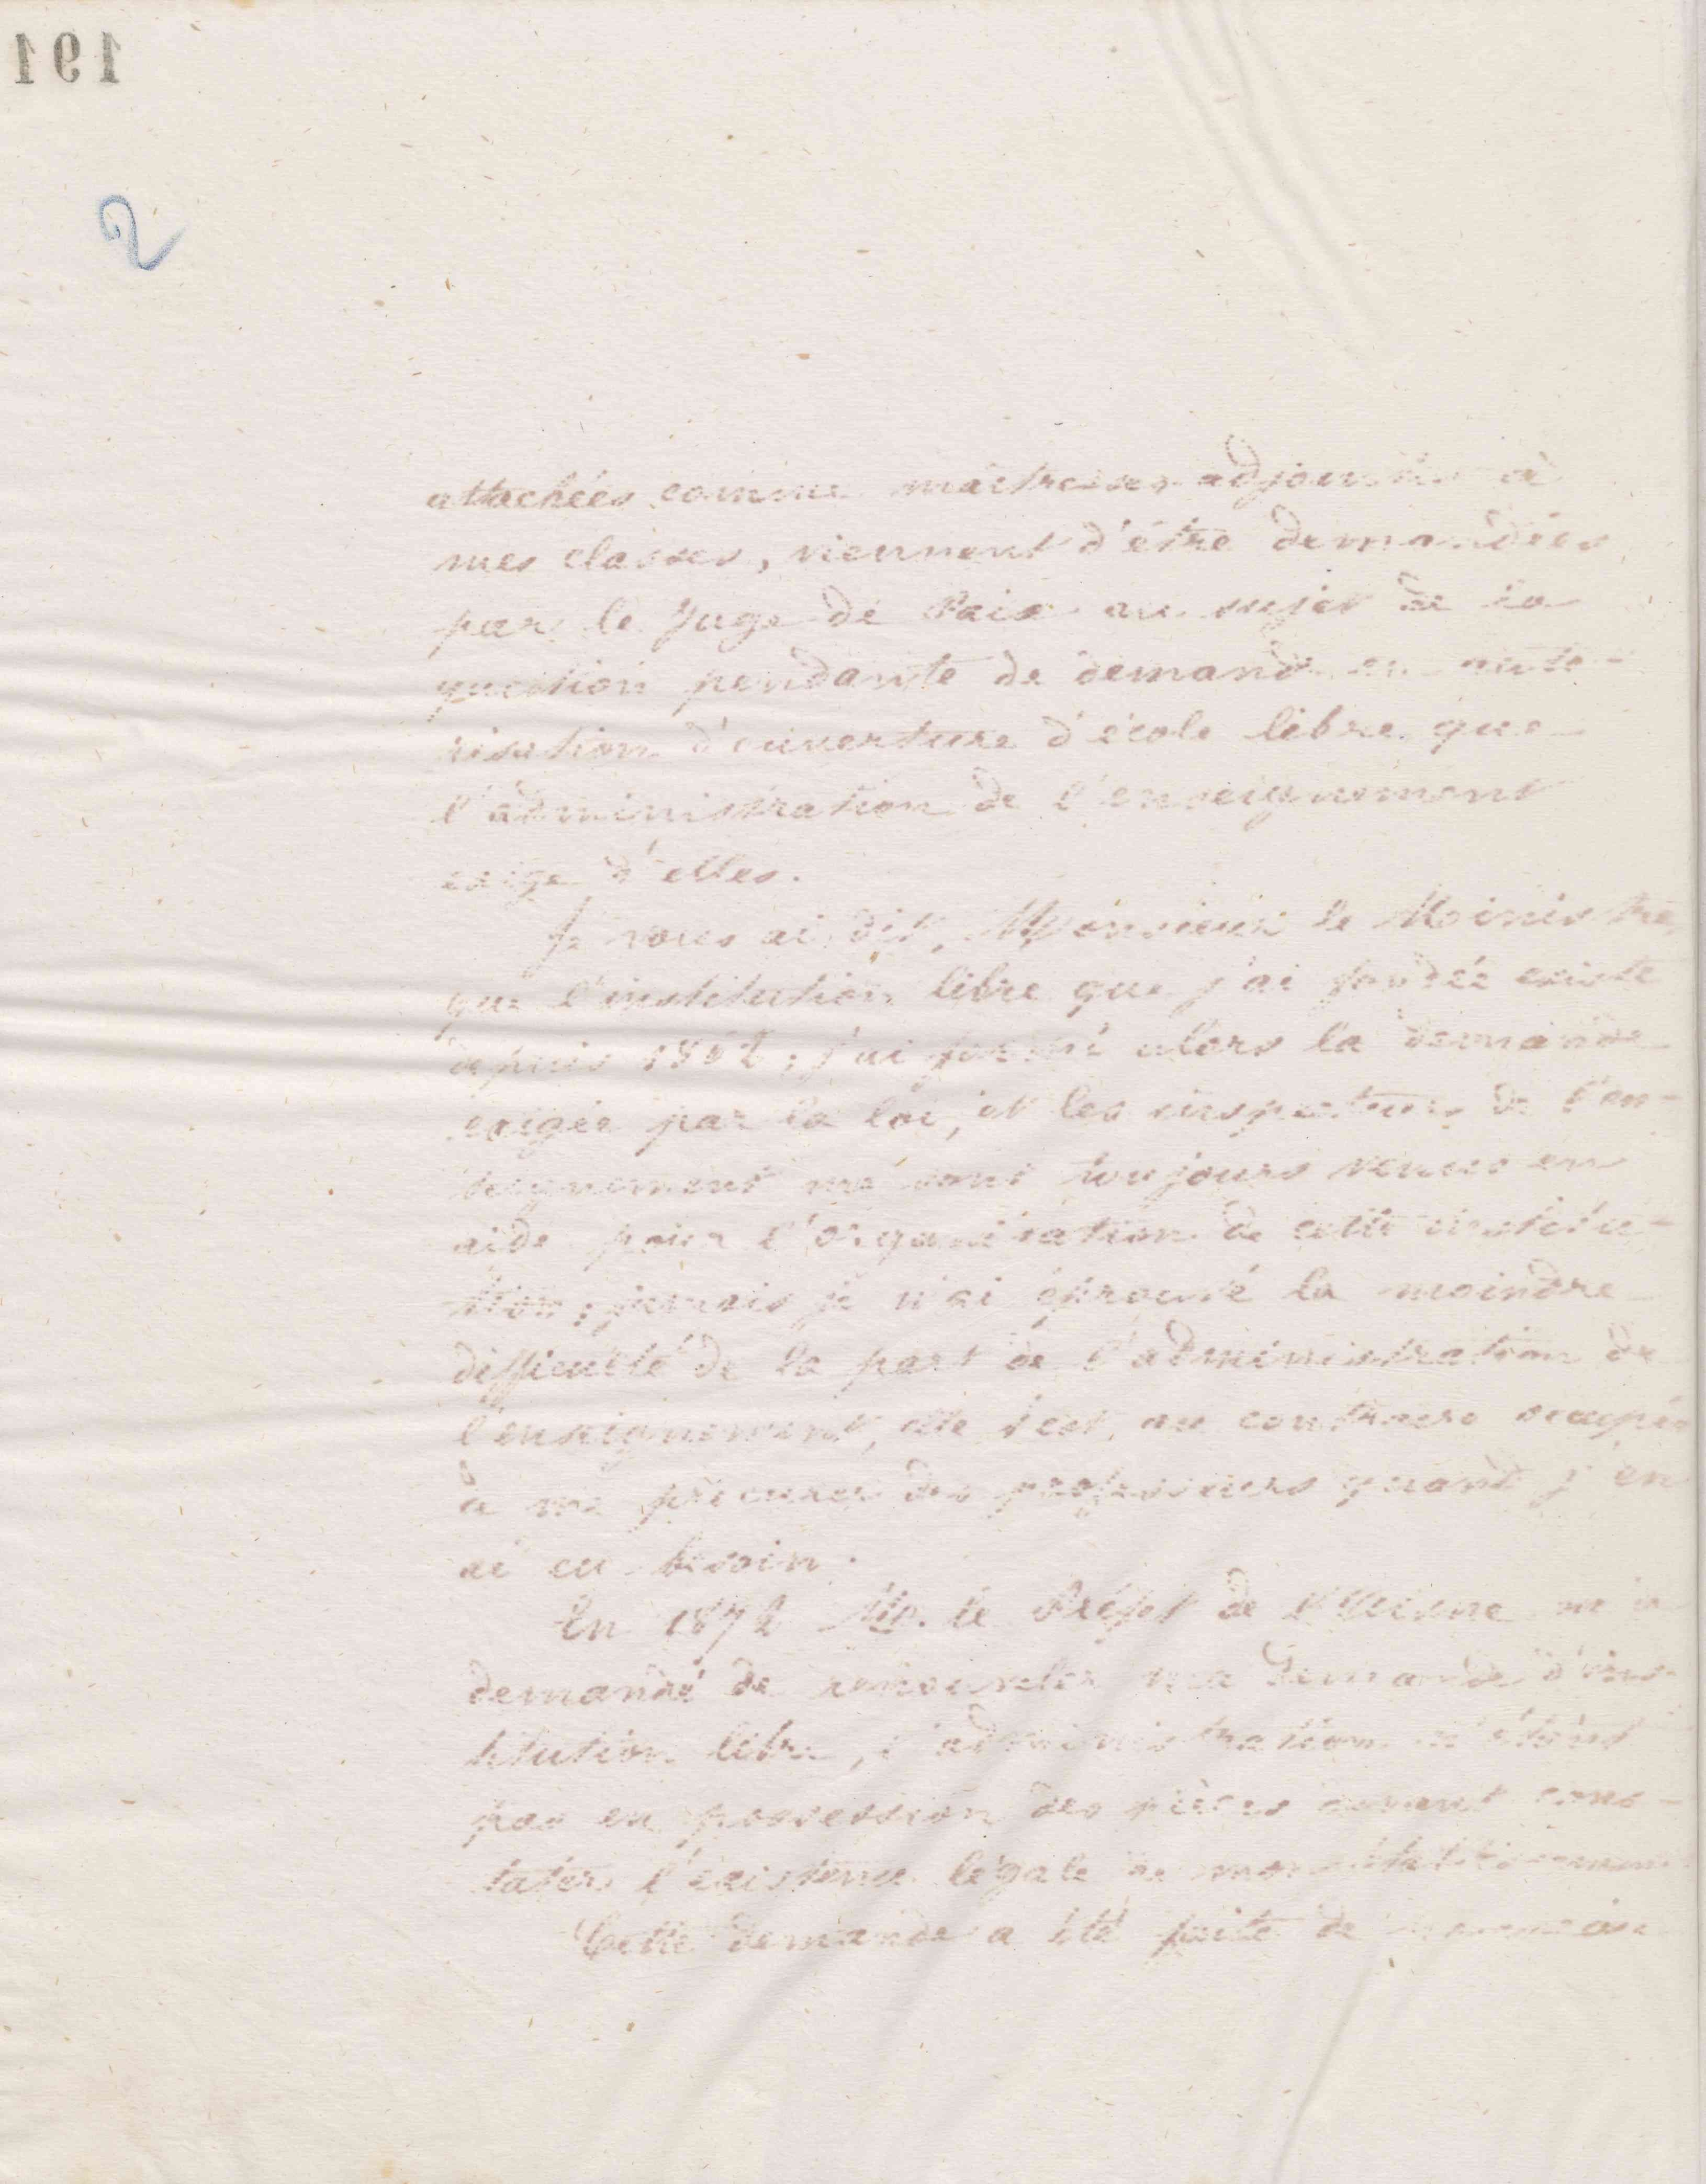 191
2
attachées comme maîtresses adjointes à
mes classes, viennent d'être demandées
par le Juge de Paix au sujet de la
question pendante de demande en auto-
risation d'ouverture d'école libre que
l'administration de l'enseignement
exige d'elles.
Je vous ai dit, Monsieur le Ministre,
que l'institution libre que j'ai fondée existe
depuis 1862, j'ai formé alors la demande
exigée par la loi, et les inspecteurs de l'en-
seignement me sont toujours venus en
aide pour l'organisation de cette institu-
tion; jamais je n'ai éprouvé la moindre
difficulté de la part de l'administration de
l'enseignement, elle s'est au contraire occupée
à me procurer des professeurs quand j'en
ai eu besoin.
En 1872 Mr. le Préfet de l'Aisne m'a
demandé de renouveler ma demande d'ins-
titution libre, l'administration n'étant
pas en possession des pièces devant cons-
tater l'existence légale de mon établissement.
Cette demande a été faite de